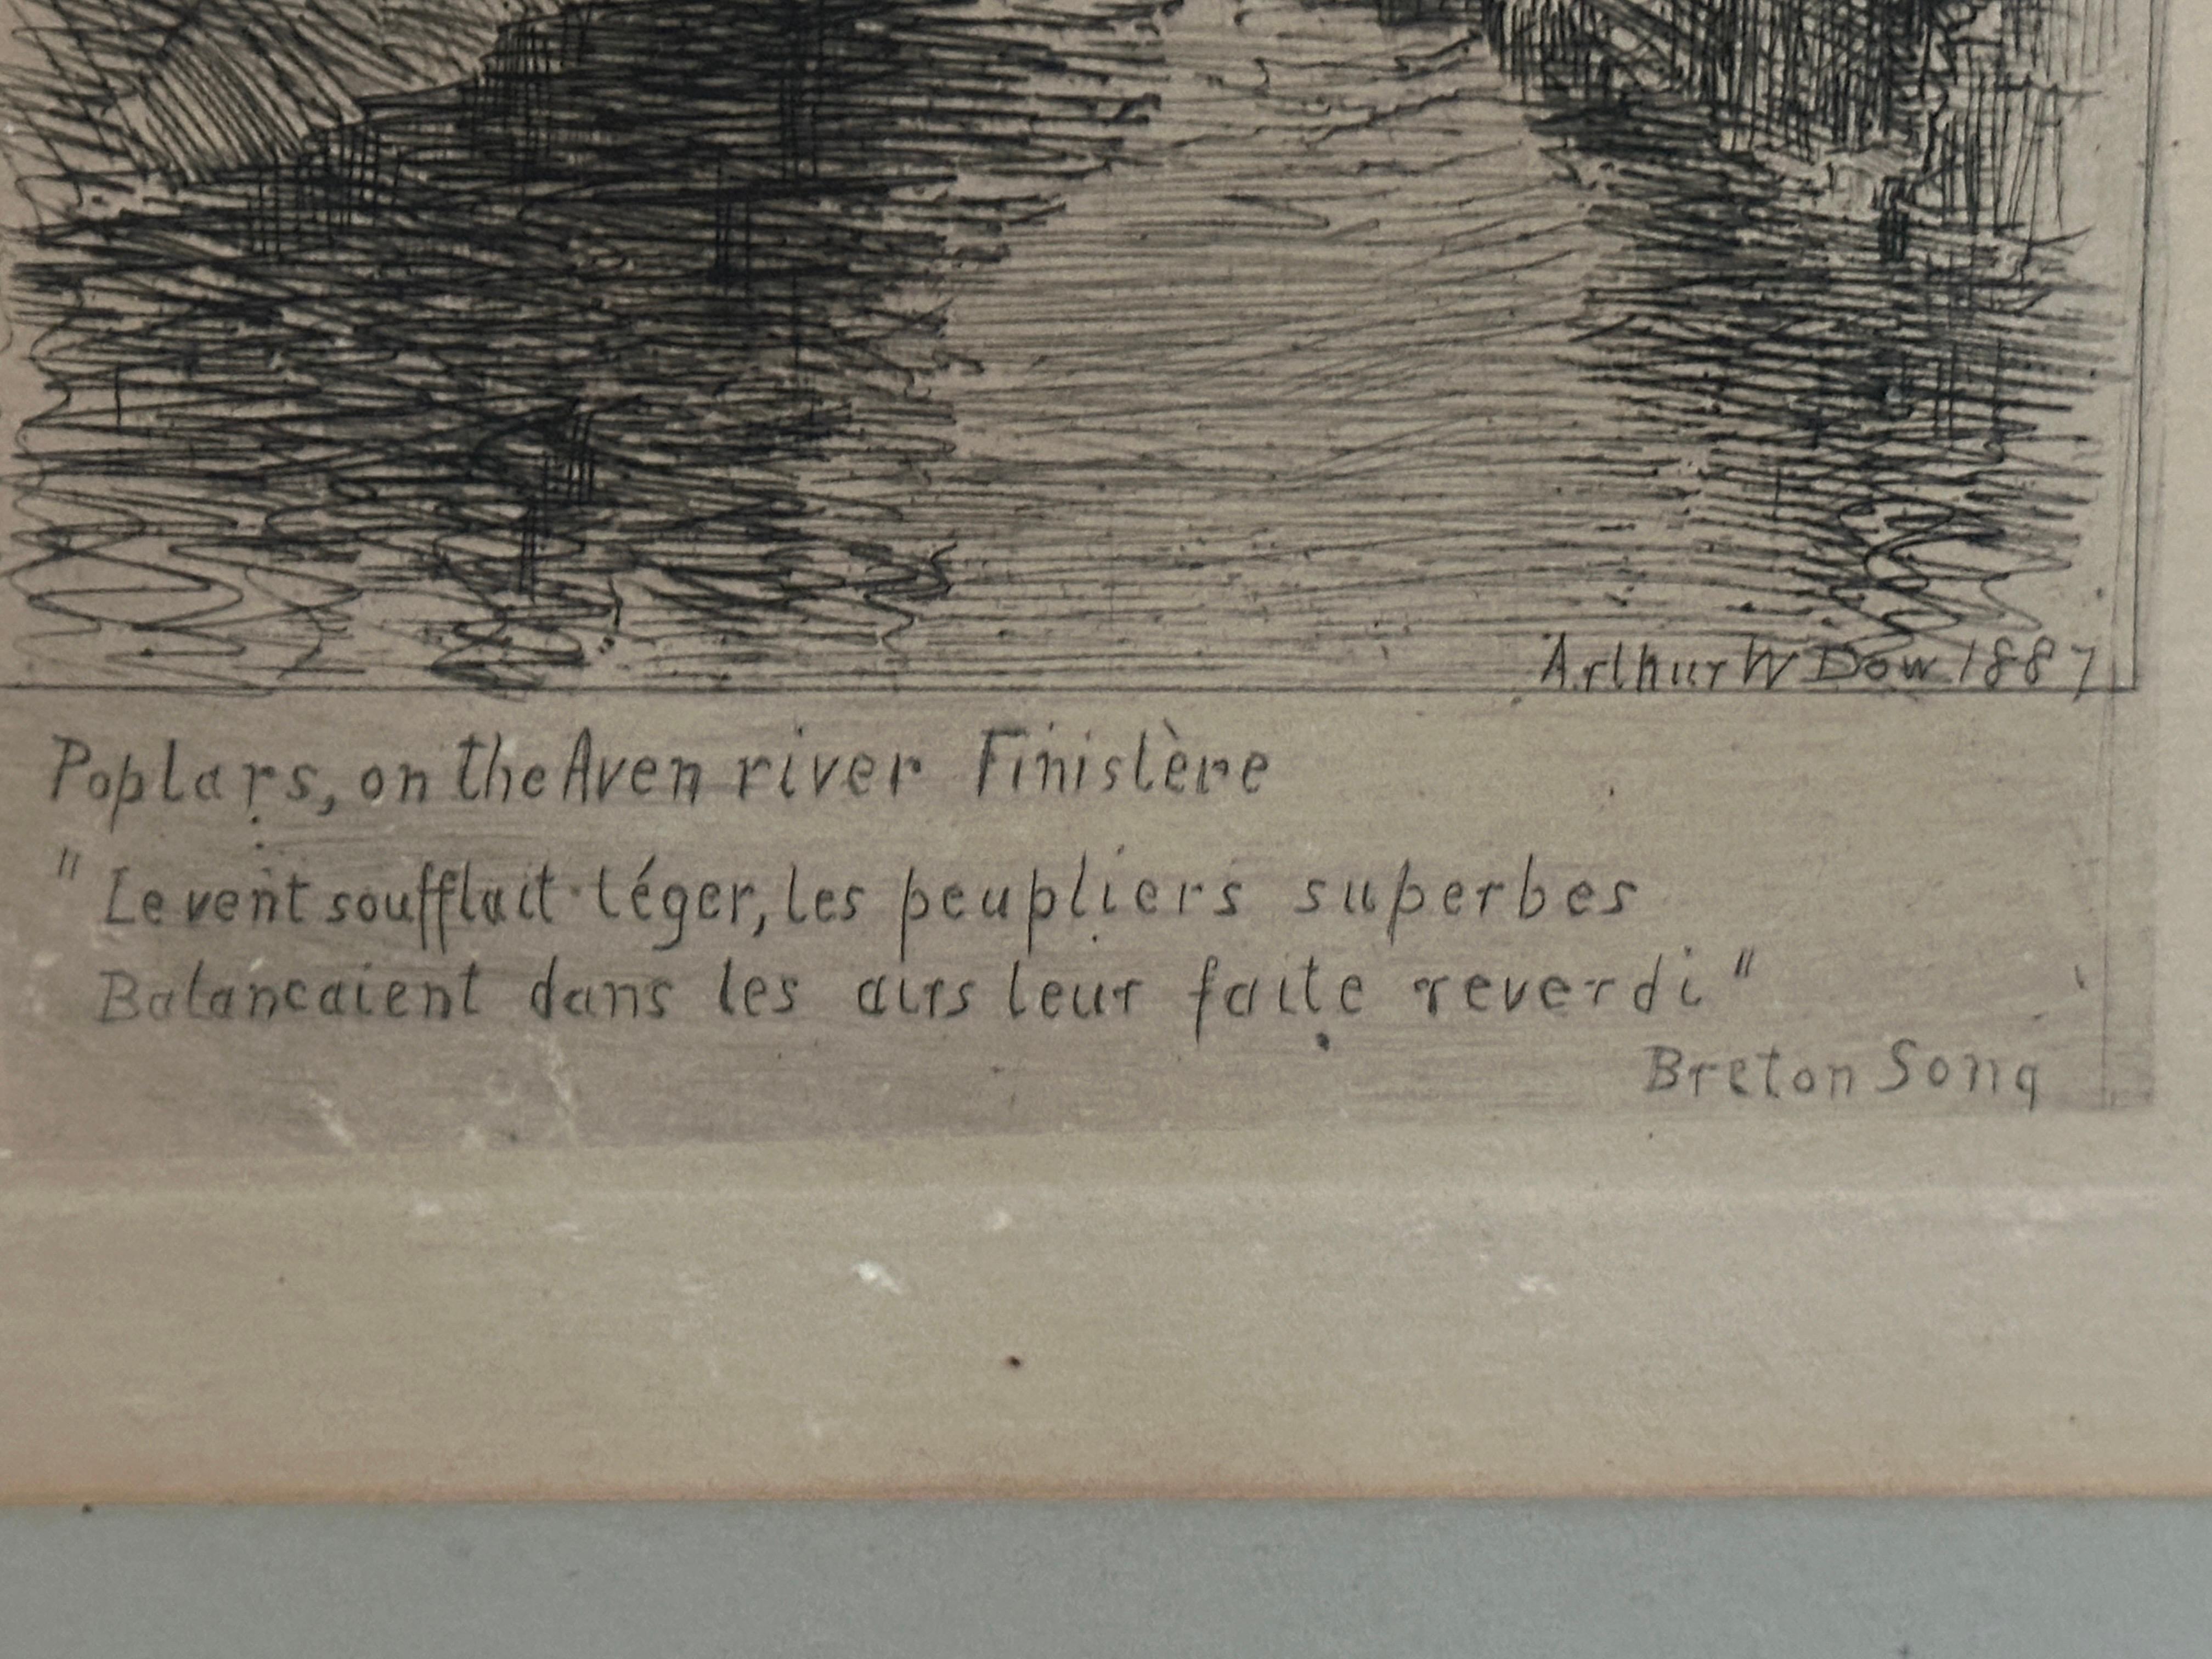 Arthur W Dow 1887
Poplars, on the Aven river Finistère
"Le vent soufflait léger, les peupliers superbes
Balancaient dans les airs leur faite reverdi"
Breton Song